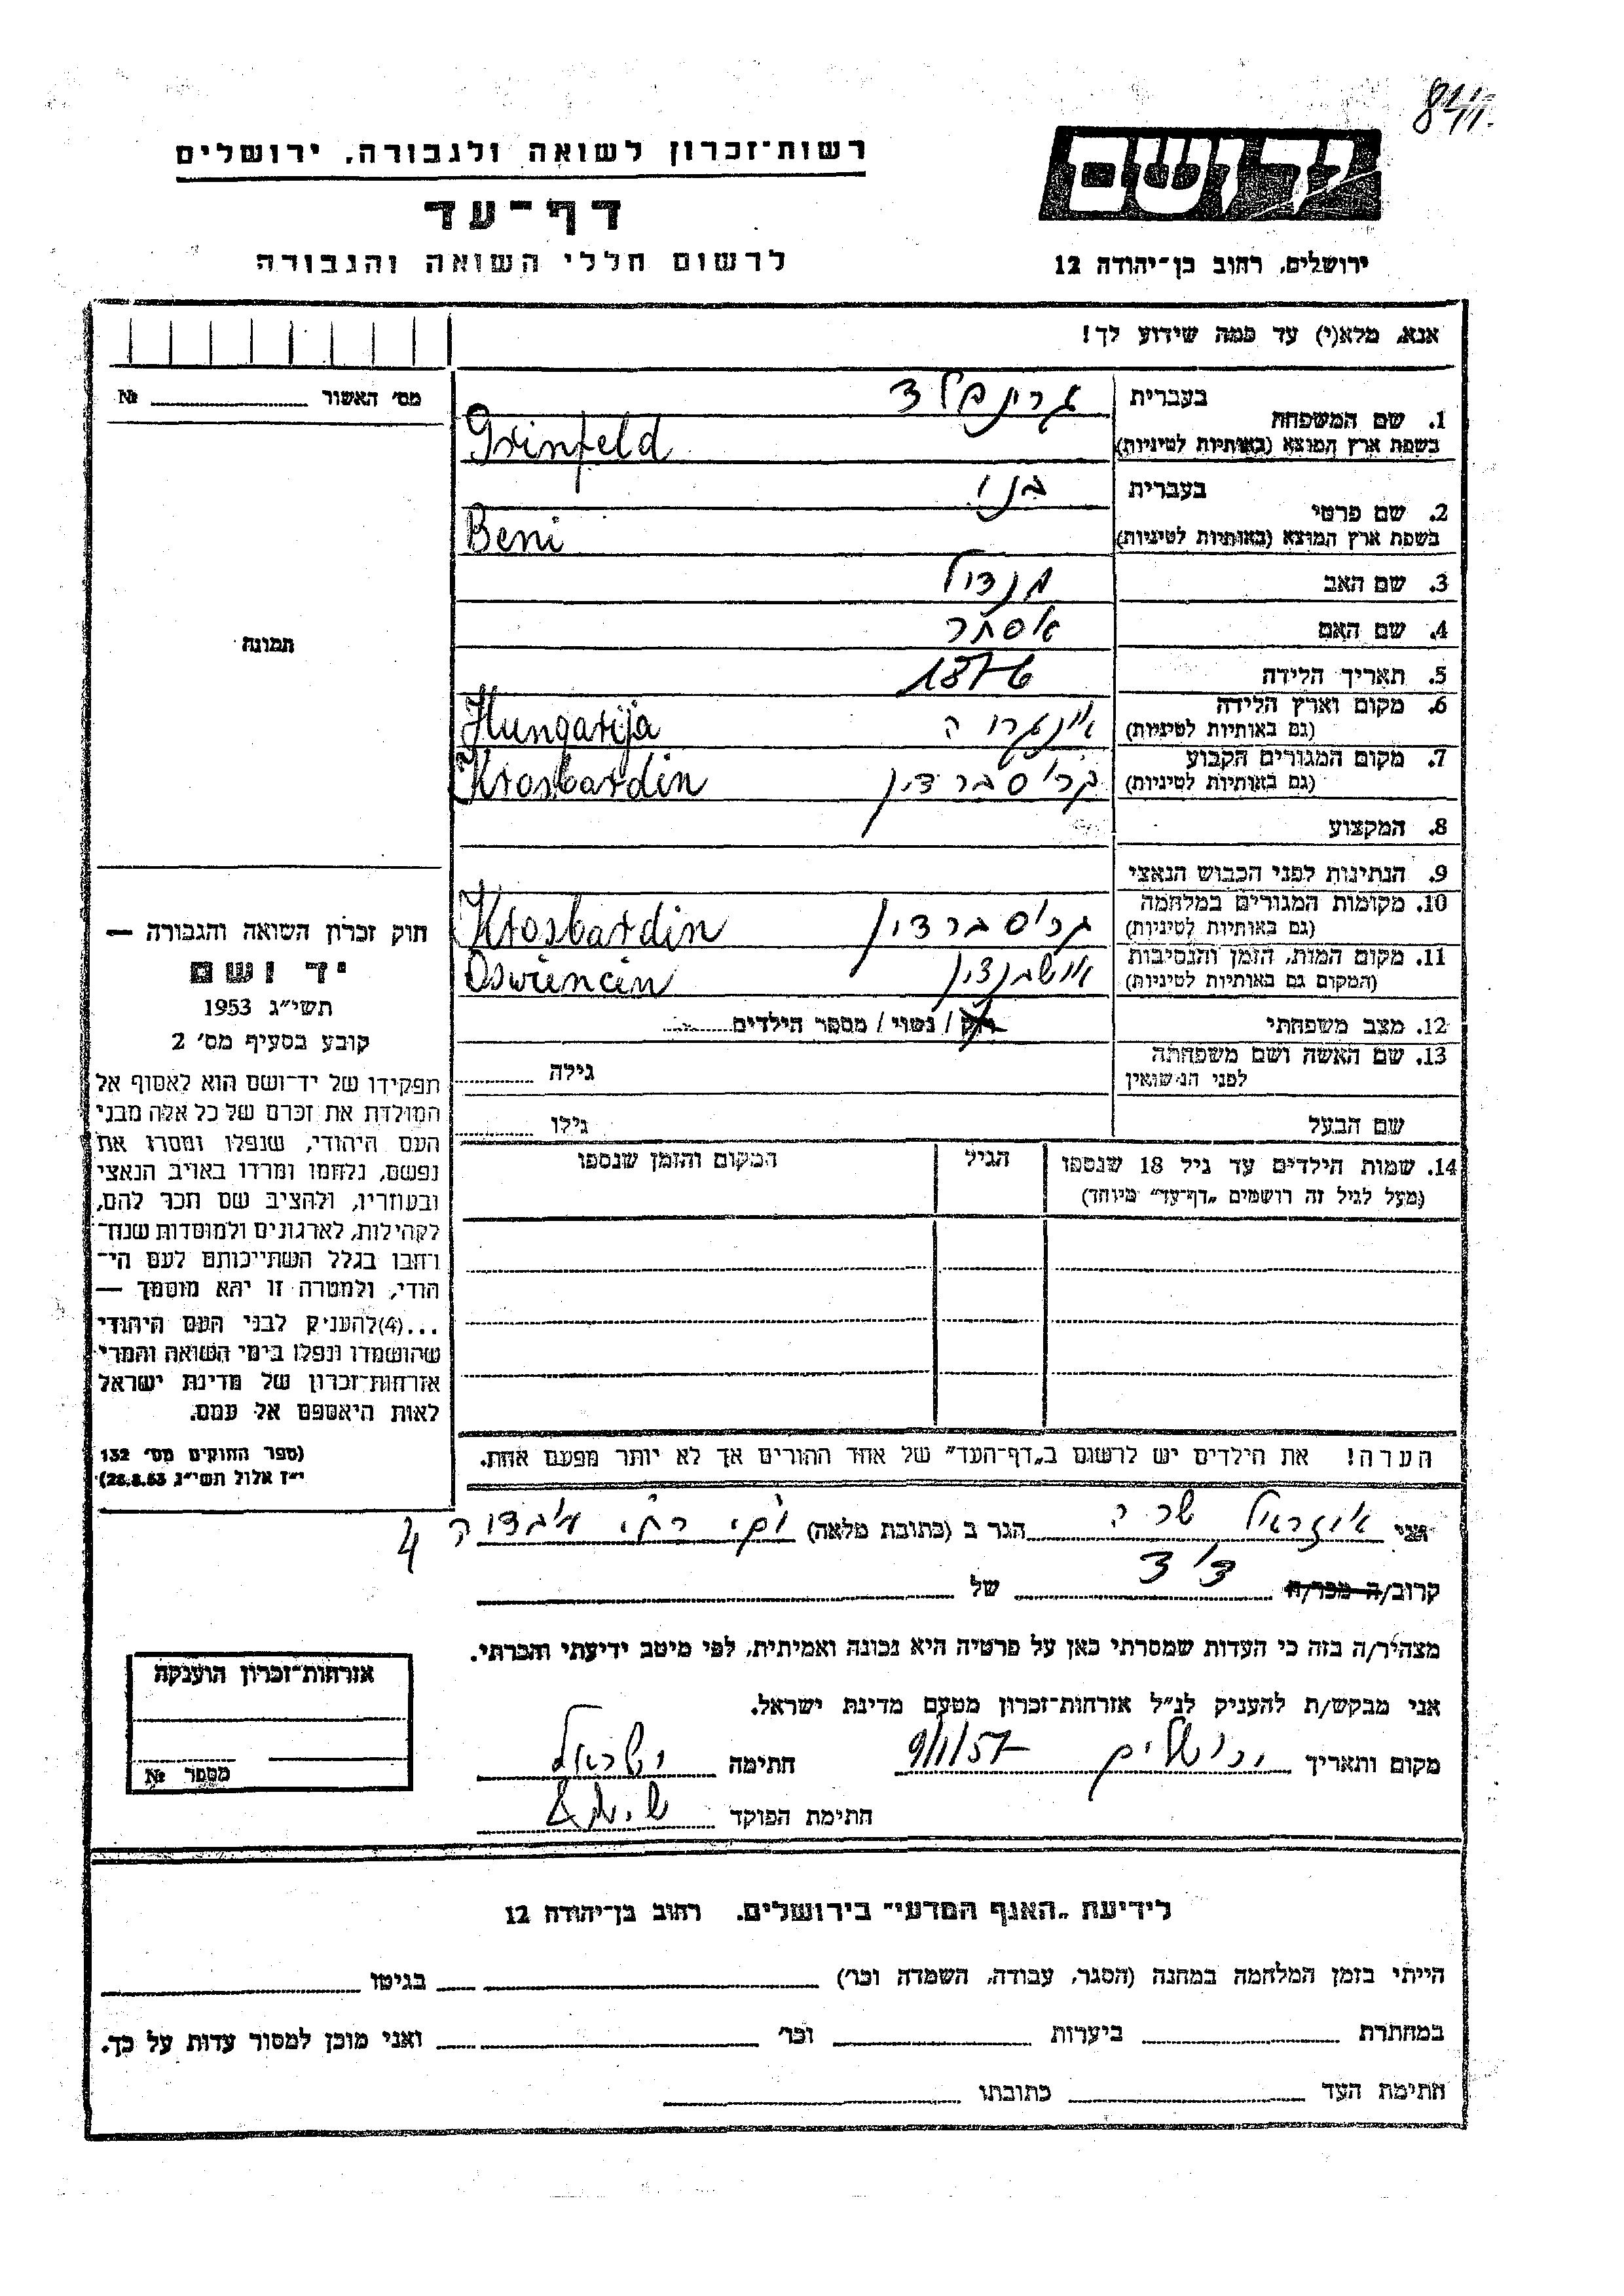 רשות־זכרון לשואה ולגבורה, ירושלים
דף־עד
לרשום חללי השואה והגבורה
יד ושם
ירושלים, רחוב בן־יהודה 12
אנא, מלא(י) עד כמה שידוע לך!
מס׳ האשור № 
1. שם המשפחה
בעברית גרינפלד
בשפת ארץ המוצא (באותיות לטיניות) Grinfeld
2. שם פרטי
בעברית בני
בשפת ארץ המוצא (באותיות לטיניות) Beni
3. שם האב מנדיל
4. שם האם אסתר
5. תאריך הלידה 1876
6. מקום וארץ הלידה
(גם באותיות לטיניות) Hungarija
7. מקום המגורים הקבוע
(גם באותיות לטיניות) קרוסברדין Krosbardin
8. המקצוע
9. הנתינות לפני הכבוש הנאצי
10. מקומות המגורים במלחמה
(גם באותיות לטיניות) Krosbardin
11. מקום המות, הזמן והנסיבות
(המקום גם באותיות לטיניות) Oswiencin
12. מצב משפחתי רוק / נשוי / מספר הילדים
13. שם האשה ושם משפחתה
לפני הנישואין גילה
שם הבעל גילו
14. שמות הילדים עד גיל 18 שנספו
(מעל לגיל זה רושמים „דף־עד״ מיוחד)
הגיל
המקום והזמן שנספו
הערה! את הילדים יש לרשום ב„דף־העד״ של אחד ההורים אך לא יותר מפעם אחת.
תמונה
חוק זכרון השואה והגבורה —
יד ושם
תשי״ג 1953
קובע בסעיף מס׳ 2
תפקידו של יד־ושם הוא לאסוף אל
המולדת את זכרם של כל אלה מבני
העם היהודי, שנפלו ומסרו את
נפשם, נלחמו ומרדו באויב הנאצי
ובעוזריו, ולהציב שם וזכר להם,
לקהילות, לארגונים ולמוסדות שנח־
רבו בגלל השתייכותם לעם הי־
הודי, ולמטרה זו יהא מוסמך —
...(4)להעניק לבני העם היהודי
שהושמדו ונפלו בימי השואה והמרי
אזרחות־זכרון של מדינת ישראל
לאות היאספם אל עמם.
(ספר החוקים מס׳ 132
י״ז אלול תשי״ג 28.8.53)
אני איזראל שרה הגר ב (כתובת מלאה) 4
קרוב/ה מכר/ה דוד של
מצהיר/ה בזה כי העדות שמסרתי כאן על פרטיה היא נכונה ואמיתית, לפי מיטב ידיעתי והכרתי.
אני מבקש/ת להעניק לנ״ל אזרחות־זכרון מטעם מדינת ישראל.
מקום ותאריך ירושלים 9/1/57 חתימה ישראל
חתימת הפוקד
אזרחות־זכרון הוענקה
מספר №
לידיעת „האגף המדעי״ בירושלים, רחוב בן־יהודה 12
הייתי בזמן המלחמה במחנה (הסגר, עבודה, השמדה וכו׳) בגיטו
במחתרת ביערות וכו׳ ואני מוכן למסור עדות על כך.
חתימת העד כתובתו